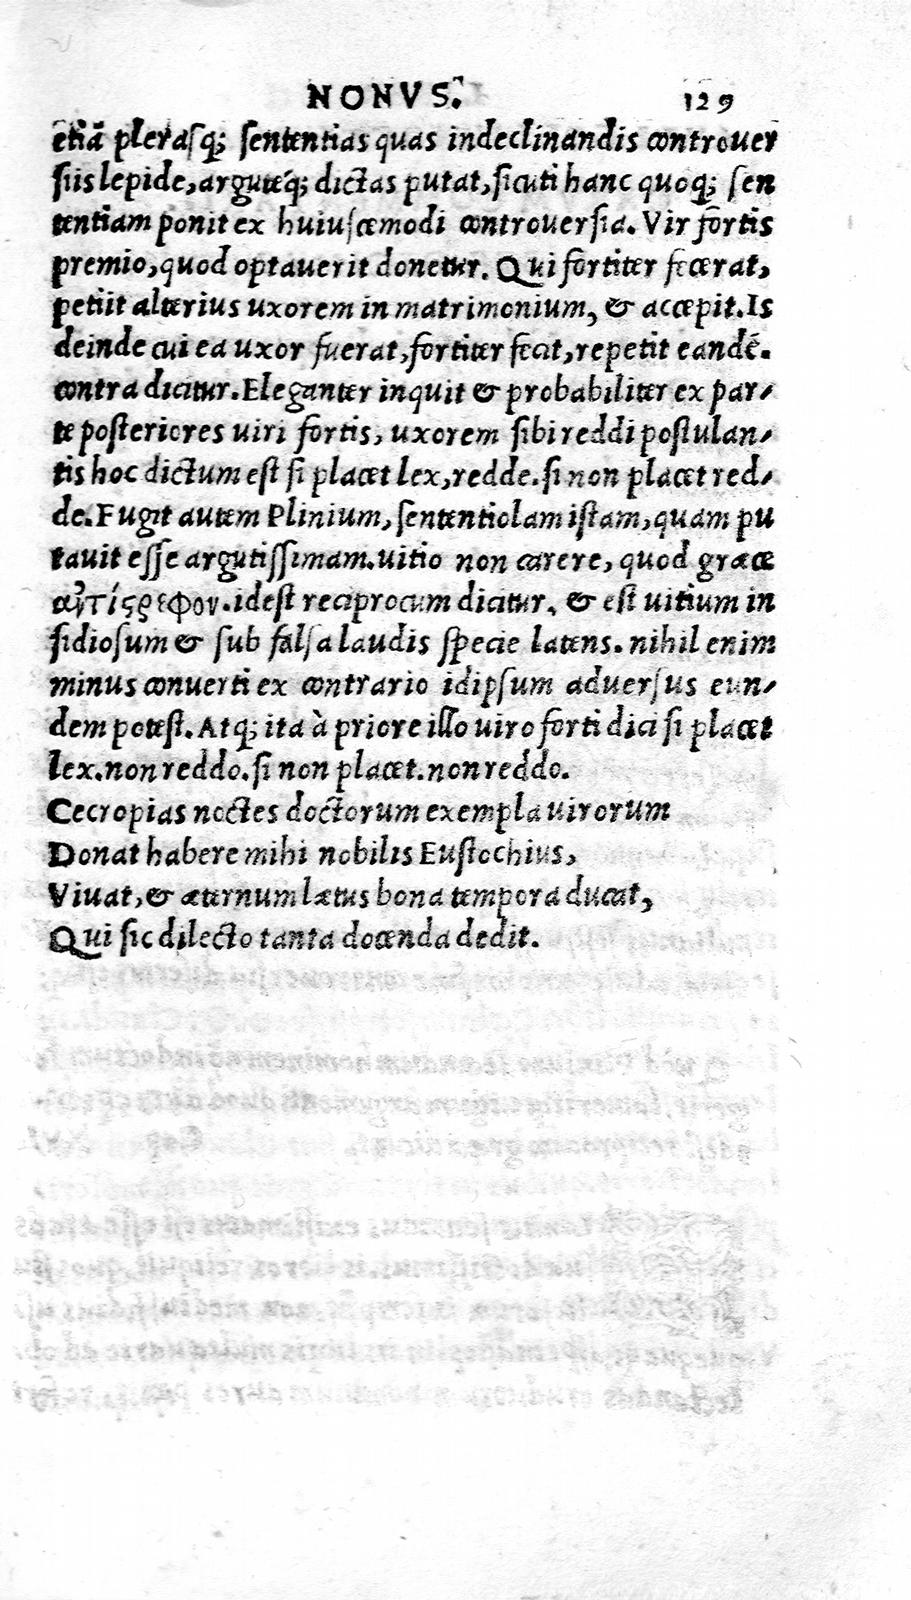 NONVS. 129
etiã plerasq; sententias quas indeclinandis controuer
siis lepide, arguteq́; dictas putat, sicuti hanc quoq; sen
tentiam ponit ex huiuscemodi controuersia. Vir fortis
premio, quod optauerit donetur. Qui fortiter fecerat,
petiit alterius uxorem in matrimonium, & accepit. Is
deinde cui ea uxor fuerat, fortiter fecit, repetit eandẽ.
contra dicitur. Eleganter inquit & probabiliter ex par-
te posteriores uiri fortis, uxorem sibi reddi postulan-
tis hoc dictum est si placet lex, redde. si non placet red-
de. Fugit autem Plinium, sententiolam istam, quam pu
tauit esse argutissimam. uitio non carere, quod græce
αὖτίςρεφον. idest reciprocum dicitur, & est uitium in
sidiosum & sub falsa laudis specie latens. nihil enim
minus conuerti ex contrario idipsum aduersus eun-
dem potest. Atq; ita à priore illo uiro forti dici si placet
lex. non reddo. si non placet. non reddo.
Cecropias noctes doctorum exempla uirorum
Donat habere mihi nobilis Eustochius,
Viuat, & æternum lætus bona tempora ducat,
Qui sic dilecto tanta docenda dedit.